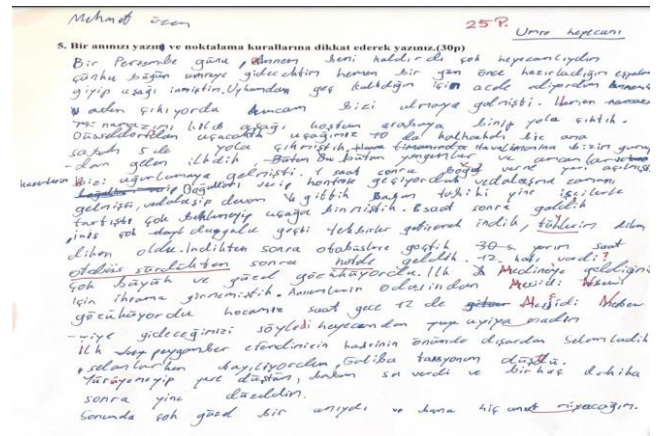 Mehmet
25 P.
Umre heyecanı
5. Bir anınızı yazın ve noktalama kurallarına dikkat ederek yazınız.(30p)
Bir Perşembe günü, annem beni kaldırdı çok heyecanlıydım
çünkü bugün umreye gidecektim hemen bir gün önce hazırladığım
giyip aşağı inmiştim. Uykumdan geç kalktığım için acele ediyordum
evden çıkıyorduk amcam bizi almaya gelmişti. Hemen
namazını kılıp aşağı koştum arabaya binip yola çıktık.
Düsseldorfdan uçacaktık uçağımız 10 da kalkacaktı biz ona
saat 5 de yola çıkmıştık, Havalimanına bizim gurup
-dan gelen ilkdik. Bütün yengemler ve amcamlar
bizi uğurlamaya gelmişti. 1 saat sonra verme yeri açılmıştı
Bağulları verip kontrole geçiyorduk vedalaşma zamanı
gelmişti, vedalaşıp devam gittik Babam yine işcilerle
tartıştı çok beklemeyip uçağa binmiştik. 5 saat sonra geldik
iniş çok duygulu geçti tekbirler getirerek indik, tüylerim diken
diken oldu. İndikten sonra otobüslere geçtik 30 yarım saat
otobüs sürdükten sonra hotele geldik. 12. katı vardı?
çok büyük ve güzel gözüküyordu. İlk Medineye geldiğimiz
için ihrama girmemiştik. Annemlerin odasından Mescidi
gözüküyordu hocamız saat gece 12 de Mescidi Nebev
-iye gideceğimizi söyledi heyecandan uyuyamadım
İlk peygamber efendimizin önünde dışardan Selamladık
, selamlarken bayılıyordum, Galiba tansiyonum düştü.
Yürüyemeyip yere düştüm, babam su verdi ve birkaç dakika
sonra yine düzeldim.
Sonunda çok güzel bir anıydı ve bunu hiç unutmıyacağım.